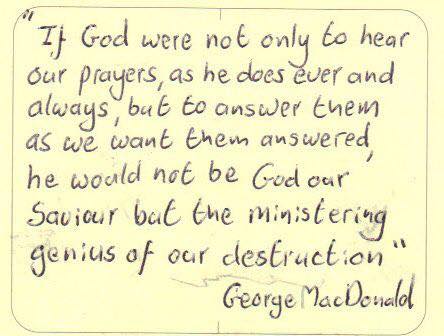 "If God were not only to hear
our prayers, as he does ever and
always, but to answer them
as we want them answered,
he would not be God our
Saviour but the ministering
genius of our destruction"
George MacDonald